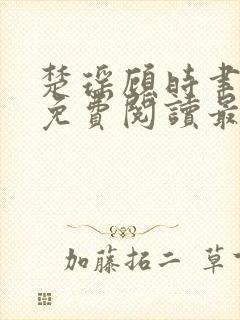 楚瑶顾时聿
免費閱讀最
加藤拓二 草